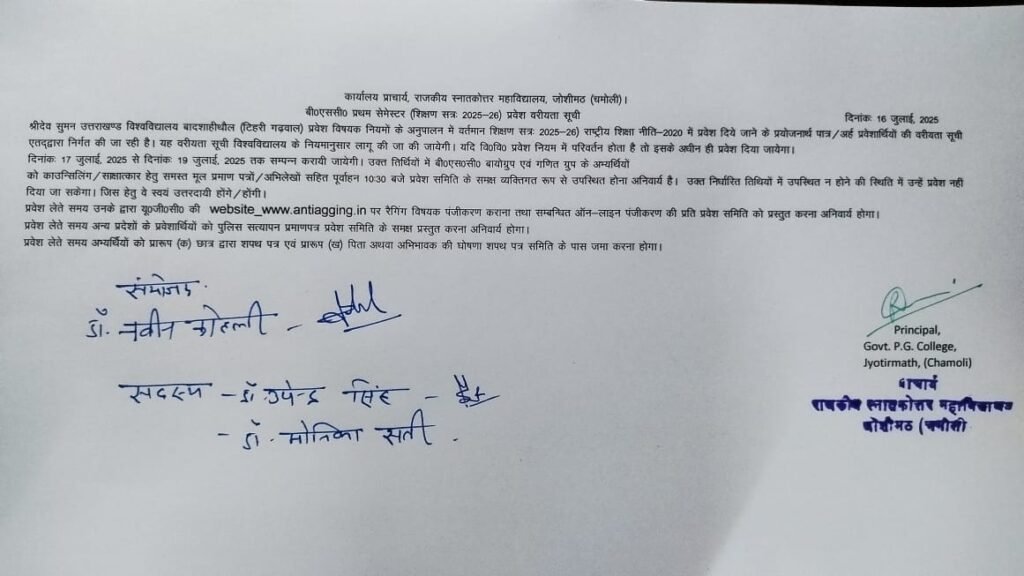 कार्यालय प्राचार्य, राजकीय स्नातकोत्तर महाविद्यालय, जोशीमठ (चमोली)।
बी0एससी0 प्रथम सेमेस्टर (शिक्षण सत्रः 2025-26) प्रवेश वरीयता सूची
दिनांकः 16 जुलाई, 2025
श्रीदेव सुमन उत्तराखण्ड विश्वविद्यालय बादशाहीथौल (टिहरी गढ़वाल) प्रवेश विषयक नियमों के अनुपालन में वर्तमान शिक्षण सत्रः 2025-26) राष्ट्रीय शिक्षा नीति-2020 में प्रवेश दिये जाने के प्रयोजनार्थ पात्र/अर्ह प्रवेशार्थियों की वरीयता सूची
एतद्द्वारा निर्गत की जा रही है। यह वरीयता सूची विश्वविद्यालय के नियमानुसार लागू की जा की जायेगी। यदि वि0वि0 प्रवेश नियम में परिवर्तन होता है तो इसके अधीन ही प्रवेश दिया जायेगा।
दिनांकः 17 जुलाई, 2025 से दिनांकः 19 जुलाई, 2025 तक सम्पन्न करायी जायेगी। उक्त तिथियों में बी0एस0सी0 बायोग्रुप एवं गणित ग्रुप के अभ्यर्थियों
को काउन्सिलिंग/साक्षात्कार हेतु समस्त मूल प्रमाण पत्रों/अभिलेखों सहित पूर्वाहन 10:30 बजे प्रवेश समिति के समक्ष व्यक्तिगत रूप से उपस्थित होना अनिवार्य है। उक्त निर्धारित तिथियों में उपस्थित न होने की स्थिति में उन्हें प्रवेश नहीं
दिया जा सकेगा। जिस हेतु वे स्वयं उत्तरदायी होंगे/होंगी।
प्रवेश लेते समय उनके द्वारा यू0जी0सी0 की website_www.antiagging.in पर रैगिंग विषयक पंजीकरण कराना तथा सम्बन्धित ऑन-लाइन पंजीकरण की प्रति प्रवेश समिति को प्रस्तुत करना अनिवार्य होगा।
प्रवेश लेते समय अन्य प्रदेशों के प्रवेशार्थियों को पुलिस सत्यापन प्रमाणपत्र प्रवेश समिति के समक्ष प्रस्तुत करना अनिवार्य होगा।
प्रवेश लेते समय अभ्यर्थियों को प्रारूप (क) छात्र द्वारा शपथ पत्र एवं प्रारूप (ख) पिता अथवा अभिभावक की घोषणा शपथ पत्र समिति के पास जमा करना होगा।
संयोजक
डॉ. नवीन कोहली -
सदस्य - डॉ. उपेन्द्र सिंह -
- डॉ. मोनिका सती.
Principal,
Govt. P.G. College,
Jyotirmath, (Chamoli)
प्राचार्य
राजकीय स्नातकोत्तर महाविद्यालय
जोशीमठ (चमोली)